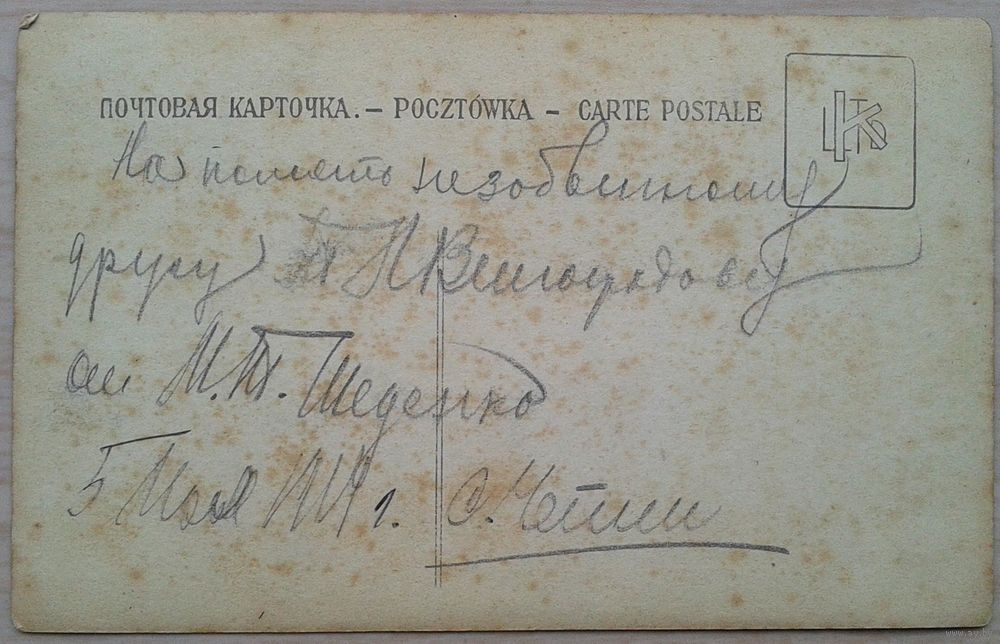 ПОЧТОВАЯ КАРТОЧКА. – POCZTÓWKA – CARTE POSTALE
На память незабвенному
другу П Виноградову
от М.П. Шеденко
5 Мая 1919 г. с.